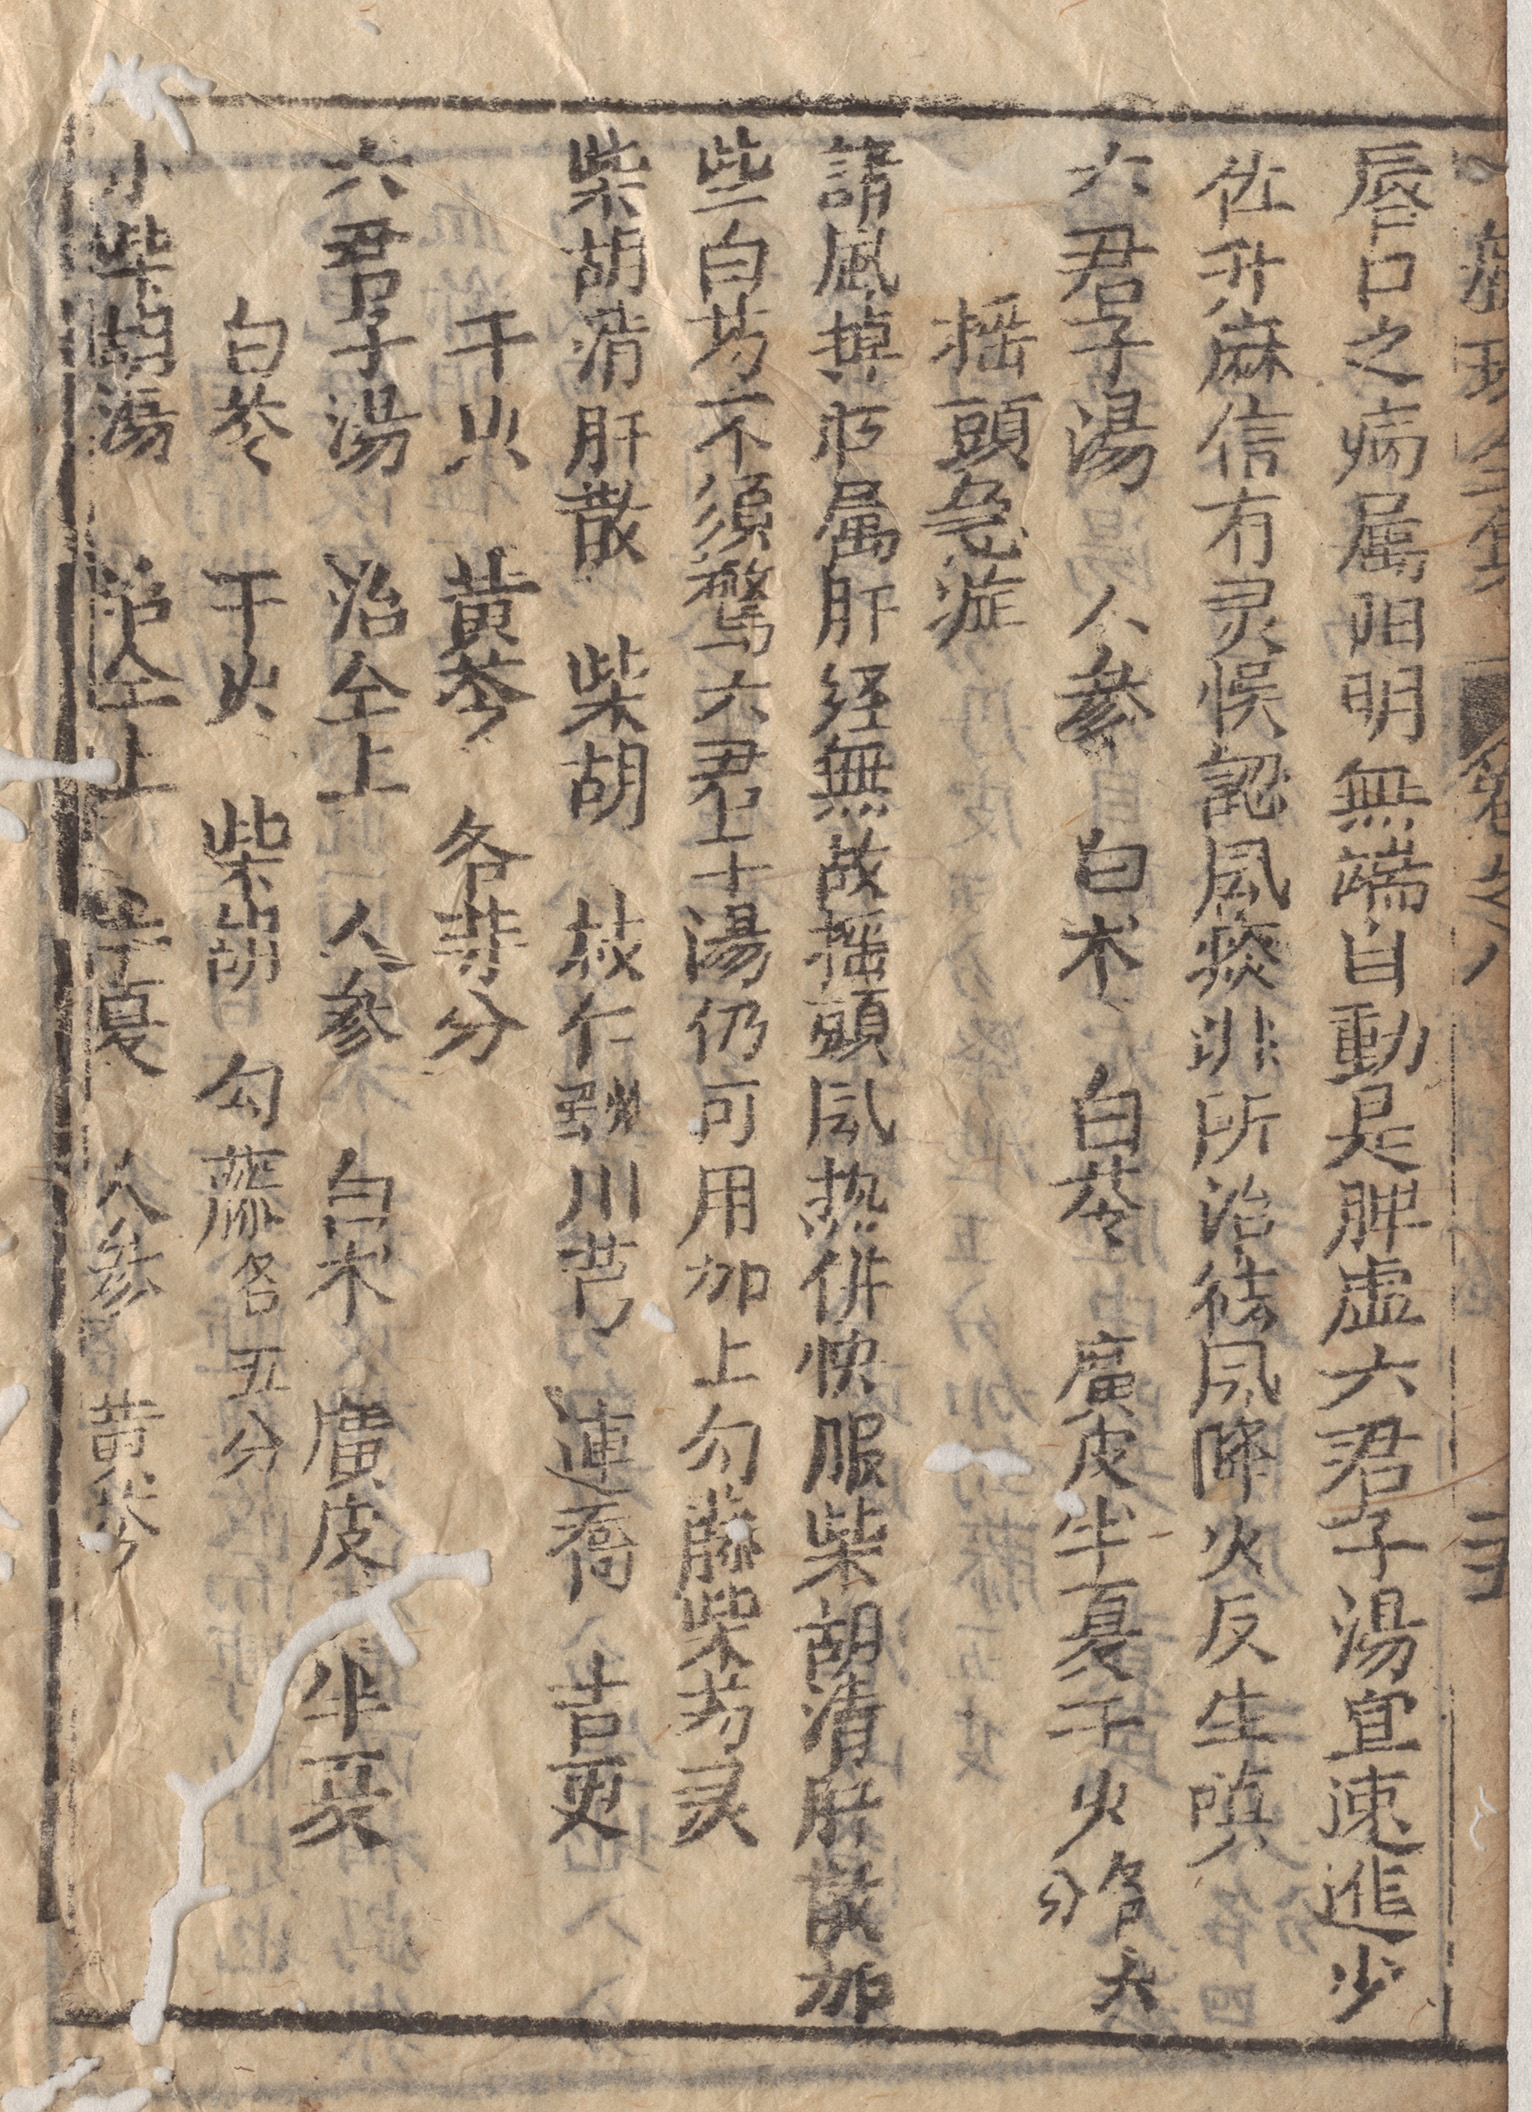 唇口之病属阳明無端自動是脾虛六君子湯宜速進少
佐升麻信有灵悮認風痰非所治祛風降火反生嗔
六君子湯 人參 白术 白苓 廣皮 半夏 干火各六分
摇頭急症
諸風掉 属肝经無故摇頭風热併快服柴胡清肝散加
些白芍不須驚六君上十湯仍可用加上勾藤柴芍灵
柴胡清肝散 柴胡 枝仁 川芎 連喬 吉更
干火 黄芩 各等分
六君子湯 治仝上 人參 白术 廣皮 半夏
白苓 干火 柴胡 勾藤各五分
小柴胡湯 治仝上 半夏 人參 黄芩